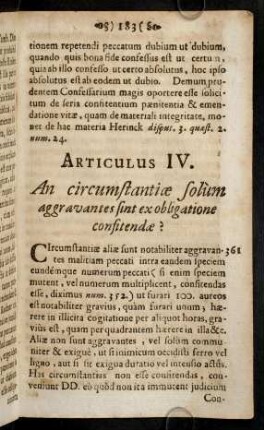 183
tionem repetendi peccatum dubium ut dubium,
quando quis bona fide confessus est ut certum,
quia ab illo confesso ut certo absolutus, hoc ipso
absolutus est ab eodem ut dubio. Demum pru-
dentem Confessarium magis oportere esse solici-
tum de seria confitentium pænitentia & emen-
datione vitæ, quam de materiali integritate, mo-
net de hac materia Herinck disput. 3. quæst. 2.
num. 24.
ARTICULUS IV.
An circumſtantiæ ſolùm
aggravantes ſint ex obligatione
confitendæ?
CIrcumſtantiæ aliæ ſunt notabiliter aggravan- 361
tes malitiam peccati intra eandem ſpeciem
eundémque numerum peccati (ſi enim ſpeciem
mutent, vel numerum multiplicent, confitendas
eſſe, diximus num. 352.) ut furari 100. aureos
eſt notabiliter gravius, quàm furari unum; hæ-
rere in illicita cogitatione per aliquot horas, gra-
vius eſt, quam per quadrantem hærere in illa &c.
Aliæ non ſunt aggravantes, vel ſolùm commu-
niter & exiguè, ut ſi inimicum occidiſti ferro vel
ligno, aut ſi ſit exigua duratio vel intenſio actûs.
Has circumſtantias non eſſe confitendas, con-
veniunt DD. eò quòd non ita immutent judicium
Con-